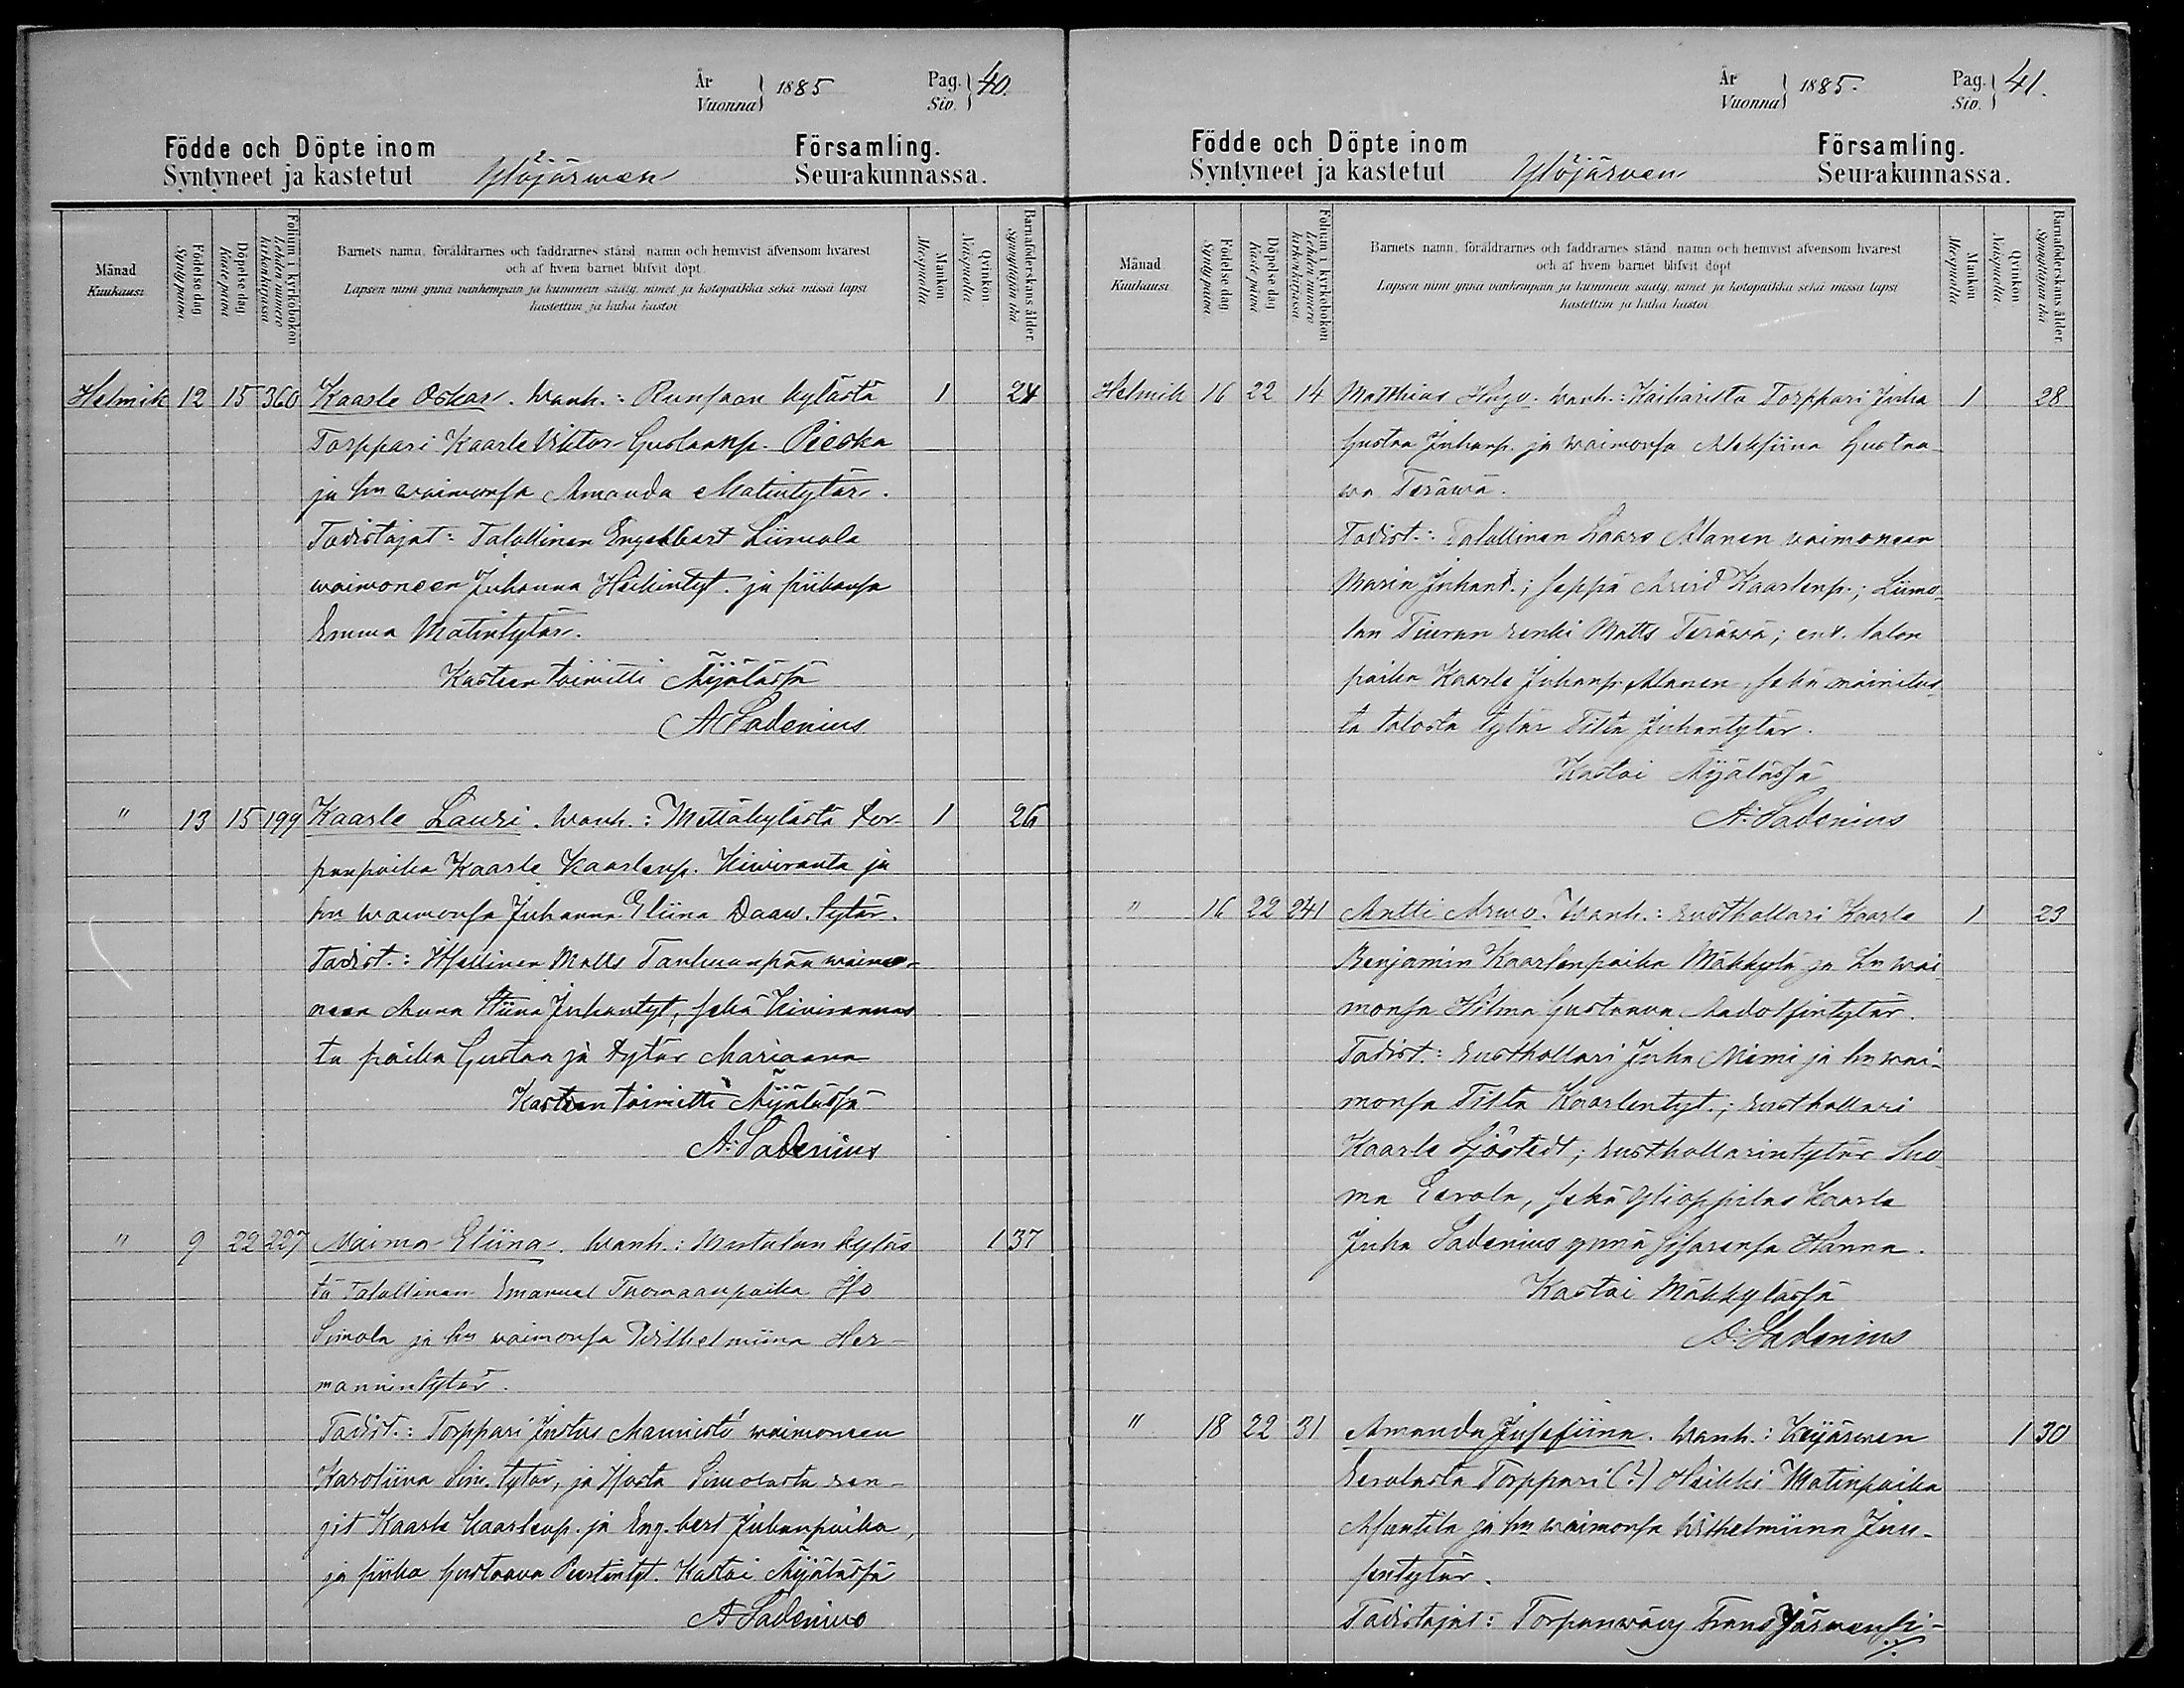 År
Vuonna } 1885 Pag.
Siv. } 40.
Födde och Döpte inom Församling.
Syntyneet ja kastetut Ylöjärwen Seurakunnassa.
Månad
Kuukausi
Födelse dag
Syntypäivä
Döpelse dag
Kaste päivä
Folium i kyrkoboken
Lehden numero kirkonkirjassa
Barnets namn, föräldrarnes och faddrarnes stånd, namn och hemvist äfvensom hvarest
och af hvem barnet blifvit döpt.
Lapsen nimi ynnä vanhempain ja kummein sääty, nimet ja kotopaikka sekä missä lapsi
kastettiin ja kuka kastoi
Mankön
Miespuolia
Qvinkön
Vaimopuolia
Barnaföderskans ålder
Synnyttäjän ikä
Helmik 12 15 360 Kaarle Oskar. Wanh.: Runsaan kylästä 1 24
Torppari Kaarle Viktor Gustaanp. Pieska
ja hn waimonsa Amanda Matintytär.
Todistajat: Talollinen Engelbert Liimola
waimoneen Juhanna Heikintyt. ja piikansa
Emma Matintytär.
Kasteen toimitti Äijälässä
A Ladenius
" 13 15 199 Kaarle Lauri. Wanh.: Mettäkylästä tor- 1 26
panpoika Kaarle Kaarlenp. Kiwiranta ja
hn waimonsa Juhanna Eliina Daaw. tytär.
Todist.: Itsellinen Matts Tanhuanpää waimo-
neen Anna Stiina Juhantyt, sekä Kivirannas
ta poika Gustaa ja tytär Mariaana
Kasteen toimitti Äijälässä
A: Ladenius
" 9 22 227 Maima Eliina. Wanh.: Mutalan kyläs 1 37
tä Talollinen Emanuel Thomaanpoika Iso
Simola ja hn vaimonsa Wilhelmiina Her-
mannintytär.
Todist.: Torppari Justus Mannistö waimoneen
Karoliina Sim. tytär, ja Isosta Simolasta ren-
git Kaarle Kaarlenp. ja Eng. bert Juhanpoika,
ja piika Gustaava Kustintyt. Kastoi Äijälässä
A Ladenius
År
Vuonna } 1885. Pag.
Siv. } 41.
Födde och Döpte inom Församling.
Syntyneet ja kastetut Ylöjärven Seurakunnassa.
Månad
Kuukausi
Födelse dag
Syntypäivä
Döpelse dag
Kaste päivä
Folium i kyrkoboken
Lehden numero kirkonkirjassa
Barnets namn, föräldrarnes och faddrarnes stånd, namn och hemvist äfvensom hvarest
och af hvem barnet blifvit döpt
Lapsen nimi ynnä vanhempain ja kummein sääty, nimet ja kotopaikka sekä missä lapsi
kastettiin ja kuka kastoi
Mankön
Miespuolia
Qvinkön
Vaimopuolia
Barnaföderskans ålder
Synnyttäjän ikä
Helmik 16 22 14 Matthias Hugo. Wanh.: Kaiharista Torppari Juha 1 28
Gustaa Juhanp. ja waimonsa Aleksiina Gustaa-
wa Teräwä.
Todist.: Talollinen Kaaro Alanen vaimoneen
Maria Juhant.; Seppä Arvid Kaarlenp.; Liimo-
lan Tiuran renki Matts Teräwä; ent. talon
poika Kaarle Juhanp. Alanen, sekä mainitus
ta talosta tytär Tilta Juhantytär.
Kastoi Äijälässä
A: Ladenius
" 16 22 241 Antti Arwo. Wanh.: rusthollari Kaarle 1 23
Benjamin Kaarlenpoika Mäkkylä ja hn wai
monsa Hilma Gustaava Aadolfintytär.
Todist.: rusthollari Juha Miemi ja hn wai-
monsa Tilta Kaarlentyt.; rusthollari
Kaarle Sjöstedt; rusthollarintytär Suo
ma Eerola, sekä Ylioppilas Kaarle
Juha Ladenius ynnä sisarensa Hanna.
Kastoi Mäkkylässä
A: Ladenius
" 18 22 31 Amanda Jusefiina. Wanh.: Keijärwen 1 30
Eerolasta Torppari (?) Heikki Matinpoika
Mantila ja hn waimonsa Wilhelmiina Juu-
sentytär.
Todistajat: Torpanwäwy Frans Järwensi-